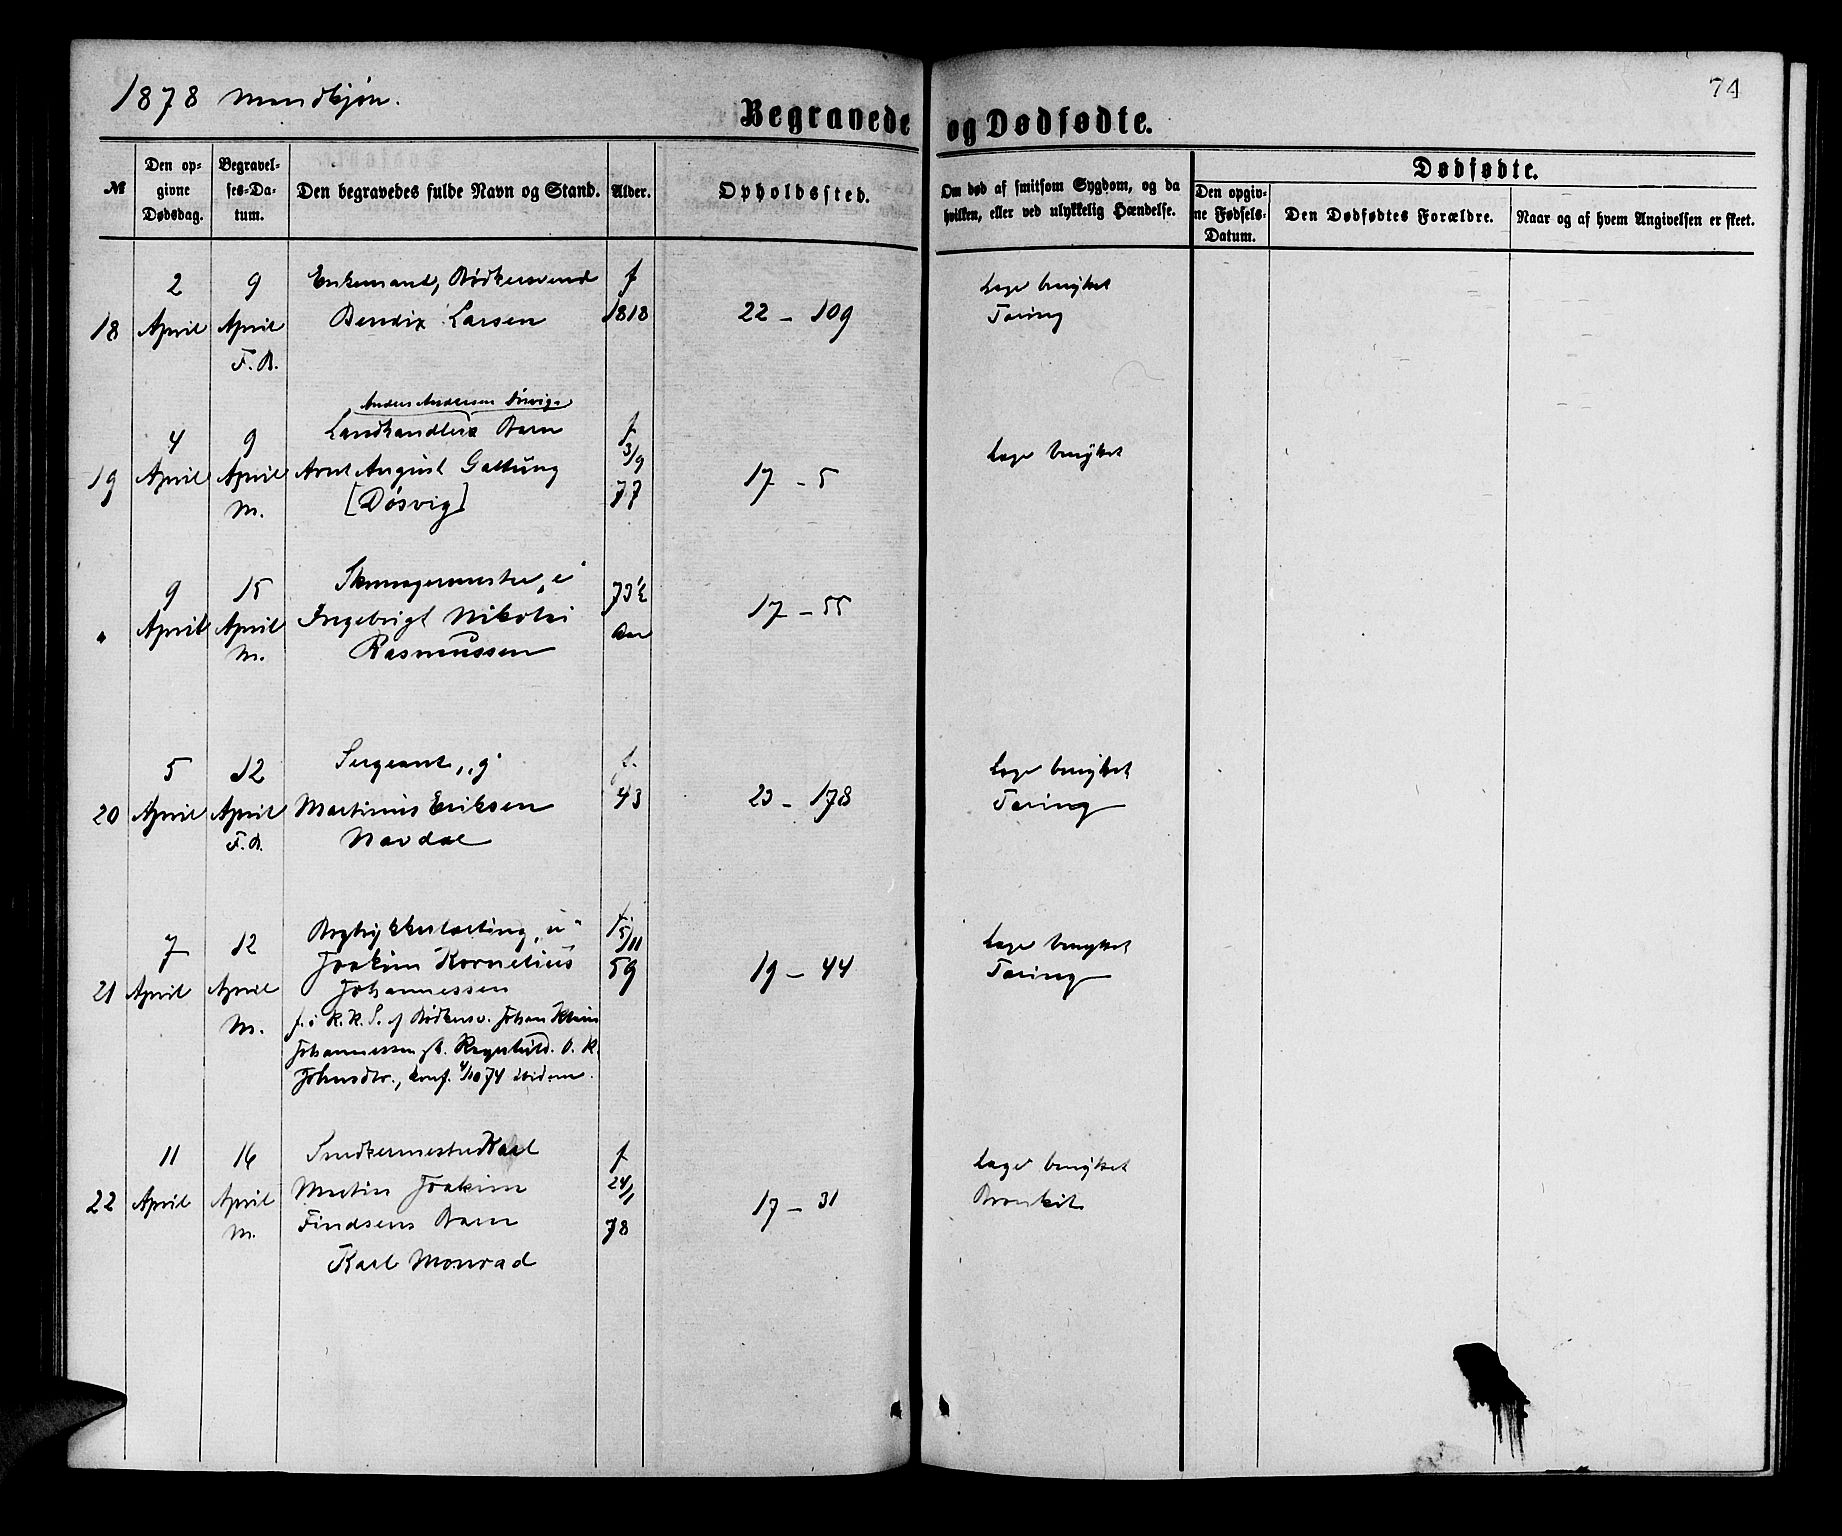 1878 Mandkjøn.
74
Begravede og Dødfødte.
№
Den opgivne Dødsdag.
Begravelses-Datum.
Den begravedes fulde Navn og Stand.
Alder.
Opholdssted.
Om død af smitsom Sygdom, og da hvilken, eller ved ulykkelig Hændelse.
Dødfødte.
Den opgivne Fødsels-Datum.
Den Dødfødtes Forældre.
Naar og af hvem Angivelsen er skeet.
2 9 Enkemand, Bødkersvend f Læge benyttet
18 April April Bendix Larsen 1818 22 - 109 Tæring
F.B.
Anders Andersen
4 9 Landhandlers Barn f Læge benyttet
3/9
19 April April Arnt August Galtung 17 - 5
M. [Døsvig] 77
9 15 Skomagermester, "i" 73½
" April April Ingebrigt Nikolai Aar 17 - 55
M. Rasmussen
5 12 Sergeant, "g" f. Læge benyttet
20 April April Martinus Eriksen 43 23 - 178 Tæring
F.B. Navdal
7 12 Bogtrykkerlærling, "u" f. 15/11 Læge benyttet
Joakim Kornelius 59 19 - 44 Tæring
21 April April Johannessen
M. f. i K.K. S. af Bødkersv. Johan
Johannessen
Johnsdtr., konf. 4/10 74 ibidem.
11 16 Snedkermester Karl f Læge benyttet
22 April April Martin Joakim 24/1 Bronkit
M. Findsens Barn 78 17 - 31
Karl Monrad